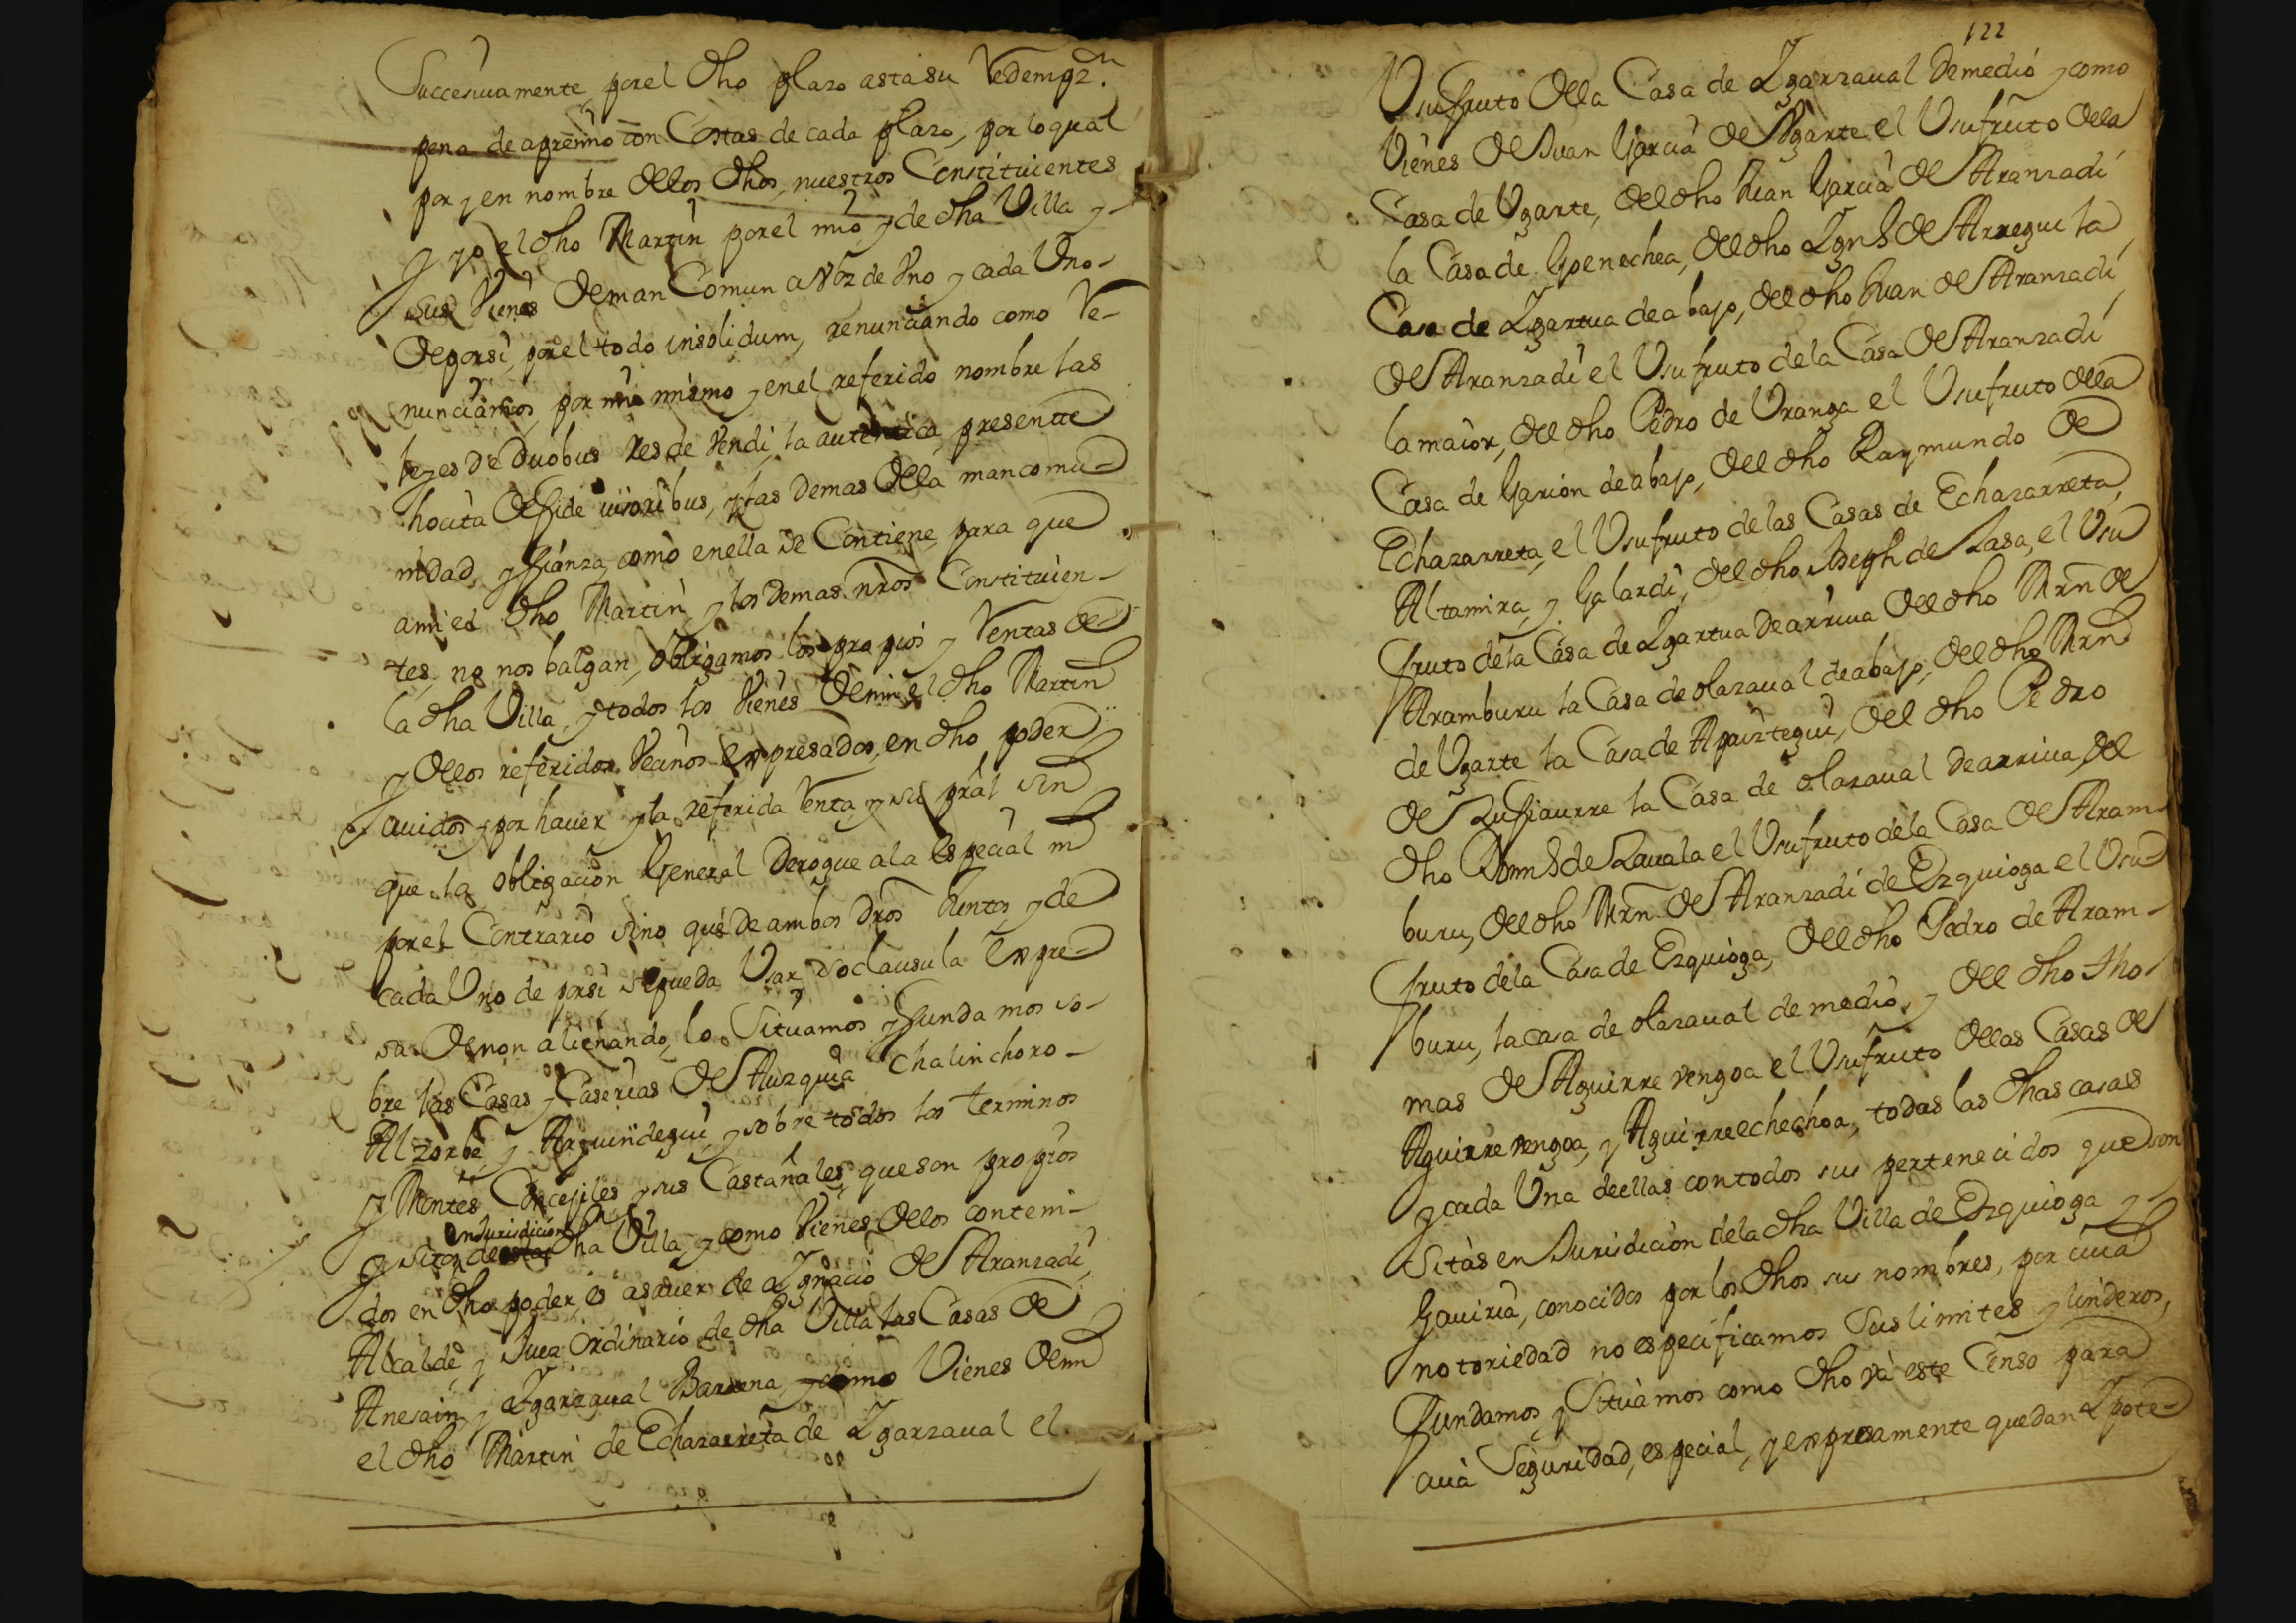 Succesiuamente, por el dho plazo asta su Redempz.n
pena de apremio con Costas de cada plazo, por lo qual
por y en nombre de los dhos, nuestros Constituientes
y yo el dho Martin por el mio, y de dha Villa y
sus Vienes de man Comun a Voz de Vno y cada Vno
de por si, por el todo insolidum, renunciando como Re-
nunciamos, por mi mismo y en el referido nombre las
leyes de duobus Res de vendi, la autentica, presentte
hocita de fide iusoribus, y las demas de la mancomu-
nidad, y fianza, como en ella se Contiene, para que
ami el dho Martin, y los demas nros Constituien-
tes, no nos balgan, obligamos los propios y Rentas de
la dha Villa, y todos los vienes de mi el dho Martin
y de los referidos Vecinos expresados, en dho poder
auidos y por hauer y la referida Renta, y su pral sin
que la obligacion General derogue a la especial ni
por el Contrario sino que de ambos dros Juntos, y de
cada Vno de por si se pueda Vsar so clausula Expre-
sa de non alienando, lo Situamos y fundamos so-
bre las Casas y Caserias de Auzquia Chalinchoro-
Alzorbe, y Arguindegui, y sobre todos los terminos
y Montes Concejiles, y sus Castañales, que son propios
y sitos de en Jurisdicion dha Villa, y como Vienes de los conteni-
dos en dho poder, es asauer de Ygnacio de Aranzadi,
Alcalde, y Juez ordinario de dha Villa las Casas de
Anesain, y Ygarzaual Barrena, y como Vienes de mi
el dho Martin de Echazarreta de Ygarzaual el
122
Vsufruto de la Casa de Ygarzaual de medio y como
Vienes de Juan Garcia de Vgarte el Vsufruto de la
Casa de Vgarte, del dho Juan Garcia de Aranzadi
la Casa de Goenechea, del dho Ygn.o de Arregui la
Casa de Ygartua de abajo, del dho Juan de Aranzadi
de Aranzadi el Vsufruto de la Casa de Aranzadi
la maior, del dho Pedro de Vranga el Vsufruto de la
Casa de Garion de abajo, del dho Raymundo de
Echazarreta, el Vsufruto de las Casas de Echazarreta,
Altamira, y Galardi, del dho Joseph de Lasa, el Vsu
fruto de la Casa de Ygartua de arriua del dho Mrn de
Aramburu la Casa de olazaual de abajo, del dho Mrn
de Vgarte la Casa de Apaiztegui, del dho Pedro
de Zufiaurre la Casa de olazaual de arriua, del
dho Domi.o de Zauala el Vsufruto de la Casa de Aram-
buru, del dho Mrn de Aranzadi de Ezquioga el Vsu-
fruto de la Casa de Ezquioga, del dho Pedro de Aram-
buru, la casa de olazaual de medio, y del dho tho
mas de Aguirre vengoa el Vsufruto de las Casas de
Aguirre vengoa, y Aguirreechechoa, todas las dhas casas
y cada Vna de ellas con todos sus pertenecidos que son
Sitas en Jurisdicion de la dha Villa de Ezquioga y
Gauiria, conocidos por los dhos sus nombres, por cuia
notoriedad no especificamos Sus limites y linderos,
Fundamos, y Situamos como dho va este Censo para
cuia Seguridad, especial, y expresamente quedan Ypote-